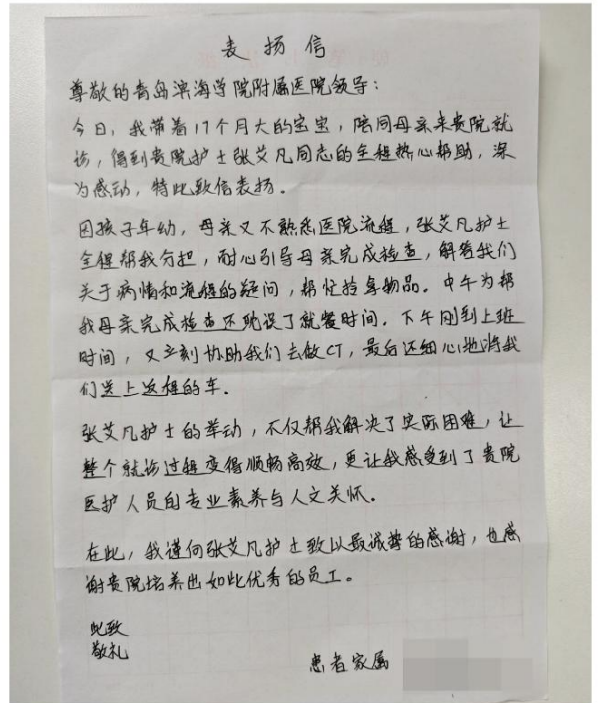 表扬信
尊敬的青岛滨海学院附属医院领导：
今日，我带着17个月大的宝宝，陪同母亲来贵院就
诊，得到贵院护士张艾凡同志的全程热心帮助，深
为感动，特此致信表扬。
因孩子年幼，母亲又不熟悉医院流程，张艾凡护士
全程帮我分担，耐心引导母亲完成检查，解答我们
关于病情和流程的疑问，帮忙拎拿物品。中午为帮
我母亲完成检查还耽误了就餐时间。下午刚到上班
时间，又立刻协助我们去做CT，最后还细心地将我
们送上返程的车。
张艾凡护士的举动，不仅帮我解决了实际困难，让
整个就诊过程变得顺畅高效，更让我感受到了贵院
医护人员的专业素养与人文关怀。
在此，我谨向张艾凡护士致以最诚挚的感谢，也感
谢贵院培养出如此优秀的员工。
此致
敬礼
患者家属